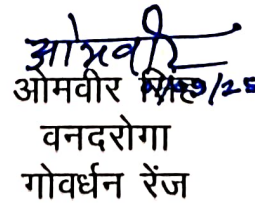 ओमवीर
ओमवीर सिंह
वनदरोगा
गोवर्धन रेंज